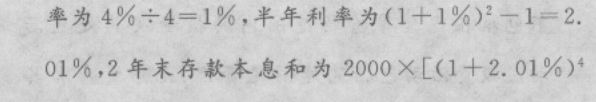 率为 4%÷4=1%,半年利率为(1+1%)²-1=2.
01%,2 年末存款本息和为 2000×[(1+2.01%)⁴